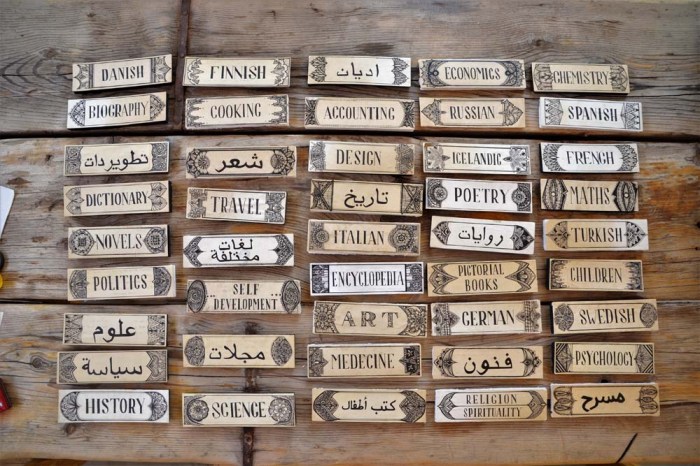 DANISH
FINNISH
اديان
ECONOMICS
CHEMISTRY
BIOGRAPHY
COOKING
ACCOUNTING
RUSSIAN
SPANISH
تطويردات
شعر
DESIGN
ICELANDIC
FRENCH
DICTIONARY
TRAVEL
تاريخ
POETRY
MATHS
NOVELS
لغات
مختلفة
ITALIAN
روايات
TURKISH
POLITICS
SELF
DEVELOPMENT
ENCYCLOPEDIA
PICTORIAL
BOOKS
CHILDREN
علوم
مجلات
ART
GERMAN
SWEDISH
سياسة
MEDECINE
فنون
PSYCHOLOGY
HISTORY
SCIENCE
كتب أطفال
RELIGION
SPIRITUALITY
مسرح